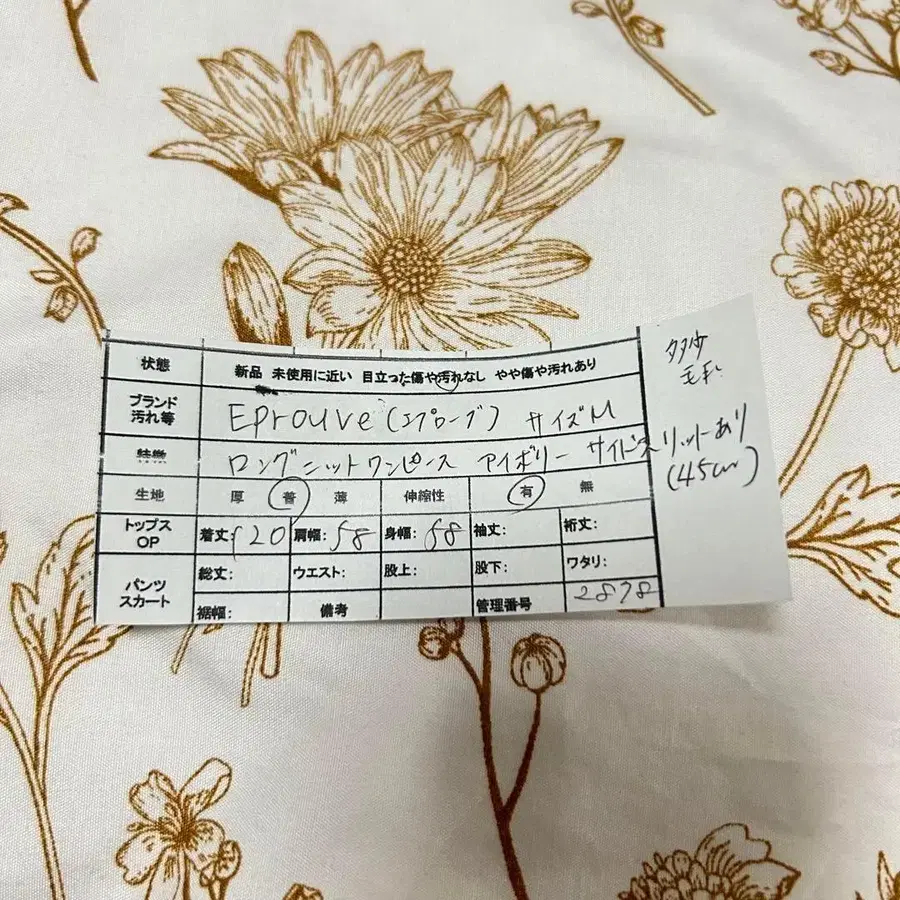 状態 新品 未使用に近い 目立った傷や汚れなし やや傷や汚れあり
多少
毛玉
ブランド 汚れ等 Eprouve(エプローブ) サイズM
特徴 ロングニットワンピース アイボリー サイドスリットあり
(45cm)
生地 厚 普 薄 伸縮性 有 無
トップス OP 着丈:120 肩幅:58 身幅:58 袖丈: 裄丈:
パンツ スカート 総丈: ウエスト: 股上: 股下: ワタリ:
裾幅: 備考 管理番号 2878